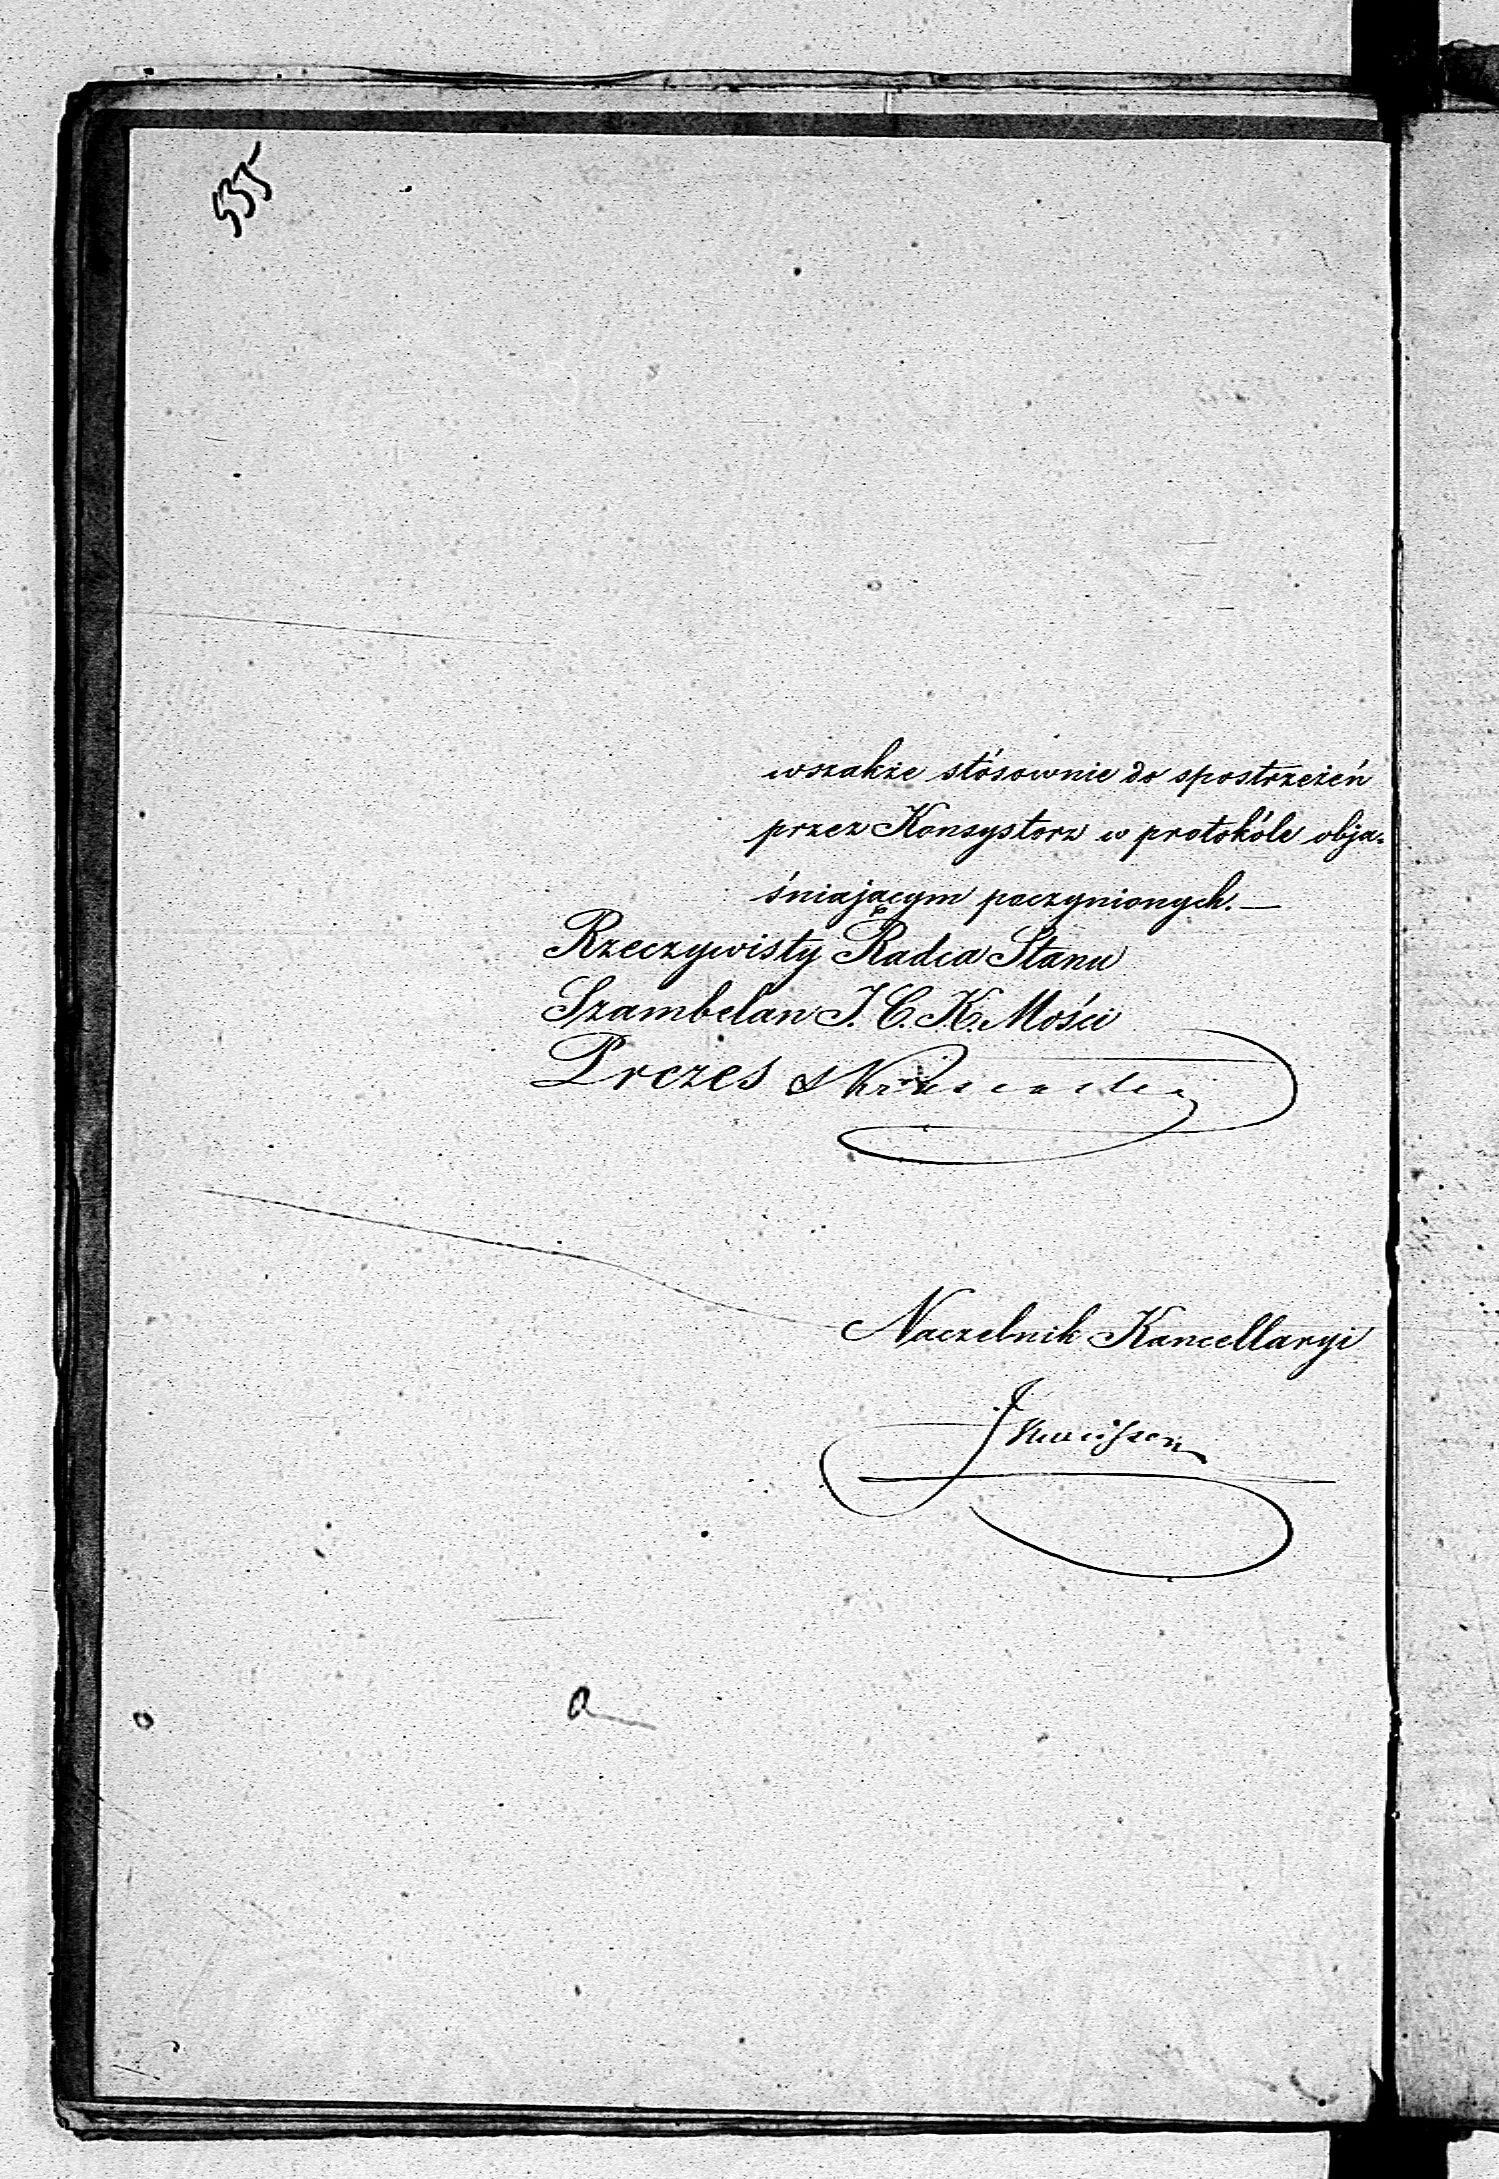 535
wszakże stósownie do spostrzeżeń
przez Konsystorz w protokóle obja-
śniającym poczynionych. —
Rzeczywisty Radca Stanu
Szambelan J. C. K. Mości
Prezes
Naczelnik Kancellaryi